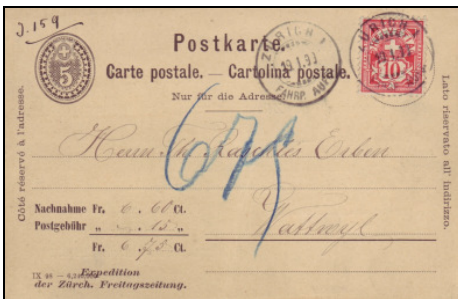 J. 159
5
Postkarte.
Carte postale. — Cartolina postale.
Nur für die Adresse
ZÜRICH 1
19.1.93
FAHRP. AUF
ZÜRICH 1
10
Côté réservé à l'adresse.
Lato riservato all' indirizzo.
Herrn Th. Erben
675
Wattwyl
Nachnahme Fr. 6.60 Ct.
Postgebühr " —.15 "
Fr. 6.75 Ct.
IX 92 —
Expedition
der Zürch. Freitagszeitung.